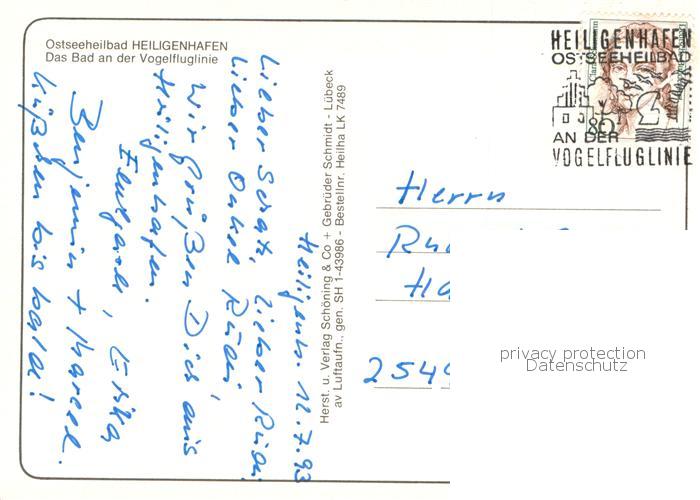 Ostseeheilbad HEILIGENHAFEN
Das Bad an der Vogelfluglinie
Heiligenh. 12.7.93
Lieber Schatz, lieber Rüdi,
lieber Onkel Rüdi,
Wir grüßen Dich aus
Heiligenhafen.
Erika
Benjamin + Marcel.
Küßchen bis bald!
Herst. u. Verlag Schöning & Co + Gebrüder Schmidt - Lübeck
av Luftaufn., gen. SH 1-43986 - Bestellnr. Heilha LK 7489
HEILIGENHAFEN
OSTSEEHEILBAD
AN DER
VOGELFLUGLINIE
80
Herrn
Rü
Ha
2544
privacy protection
Datenschutz